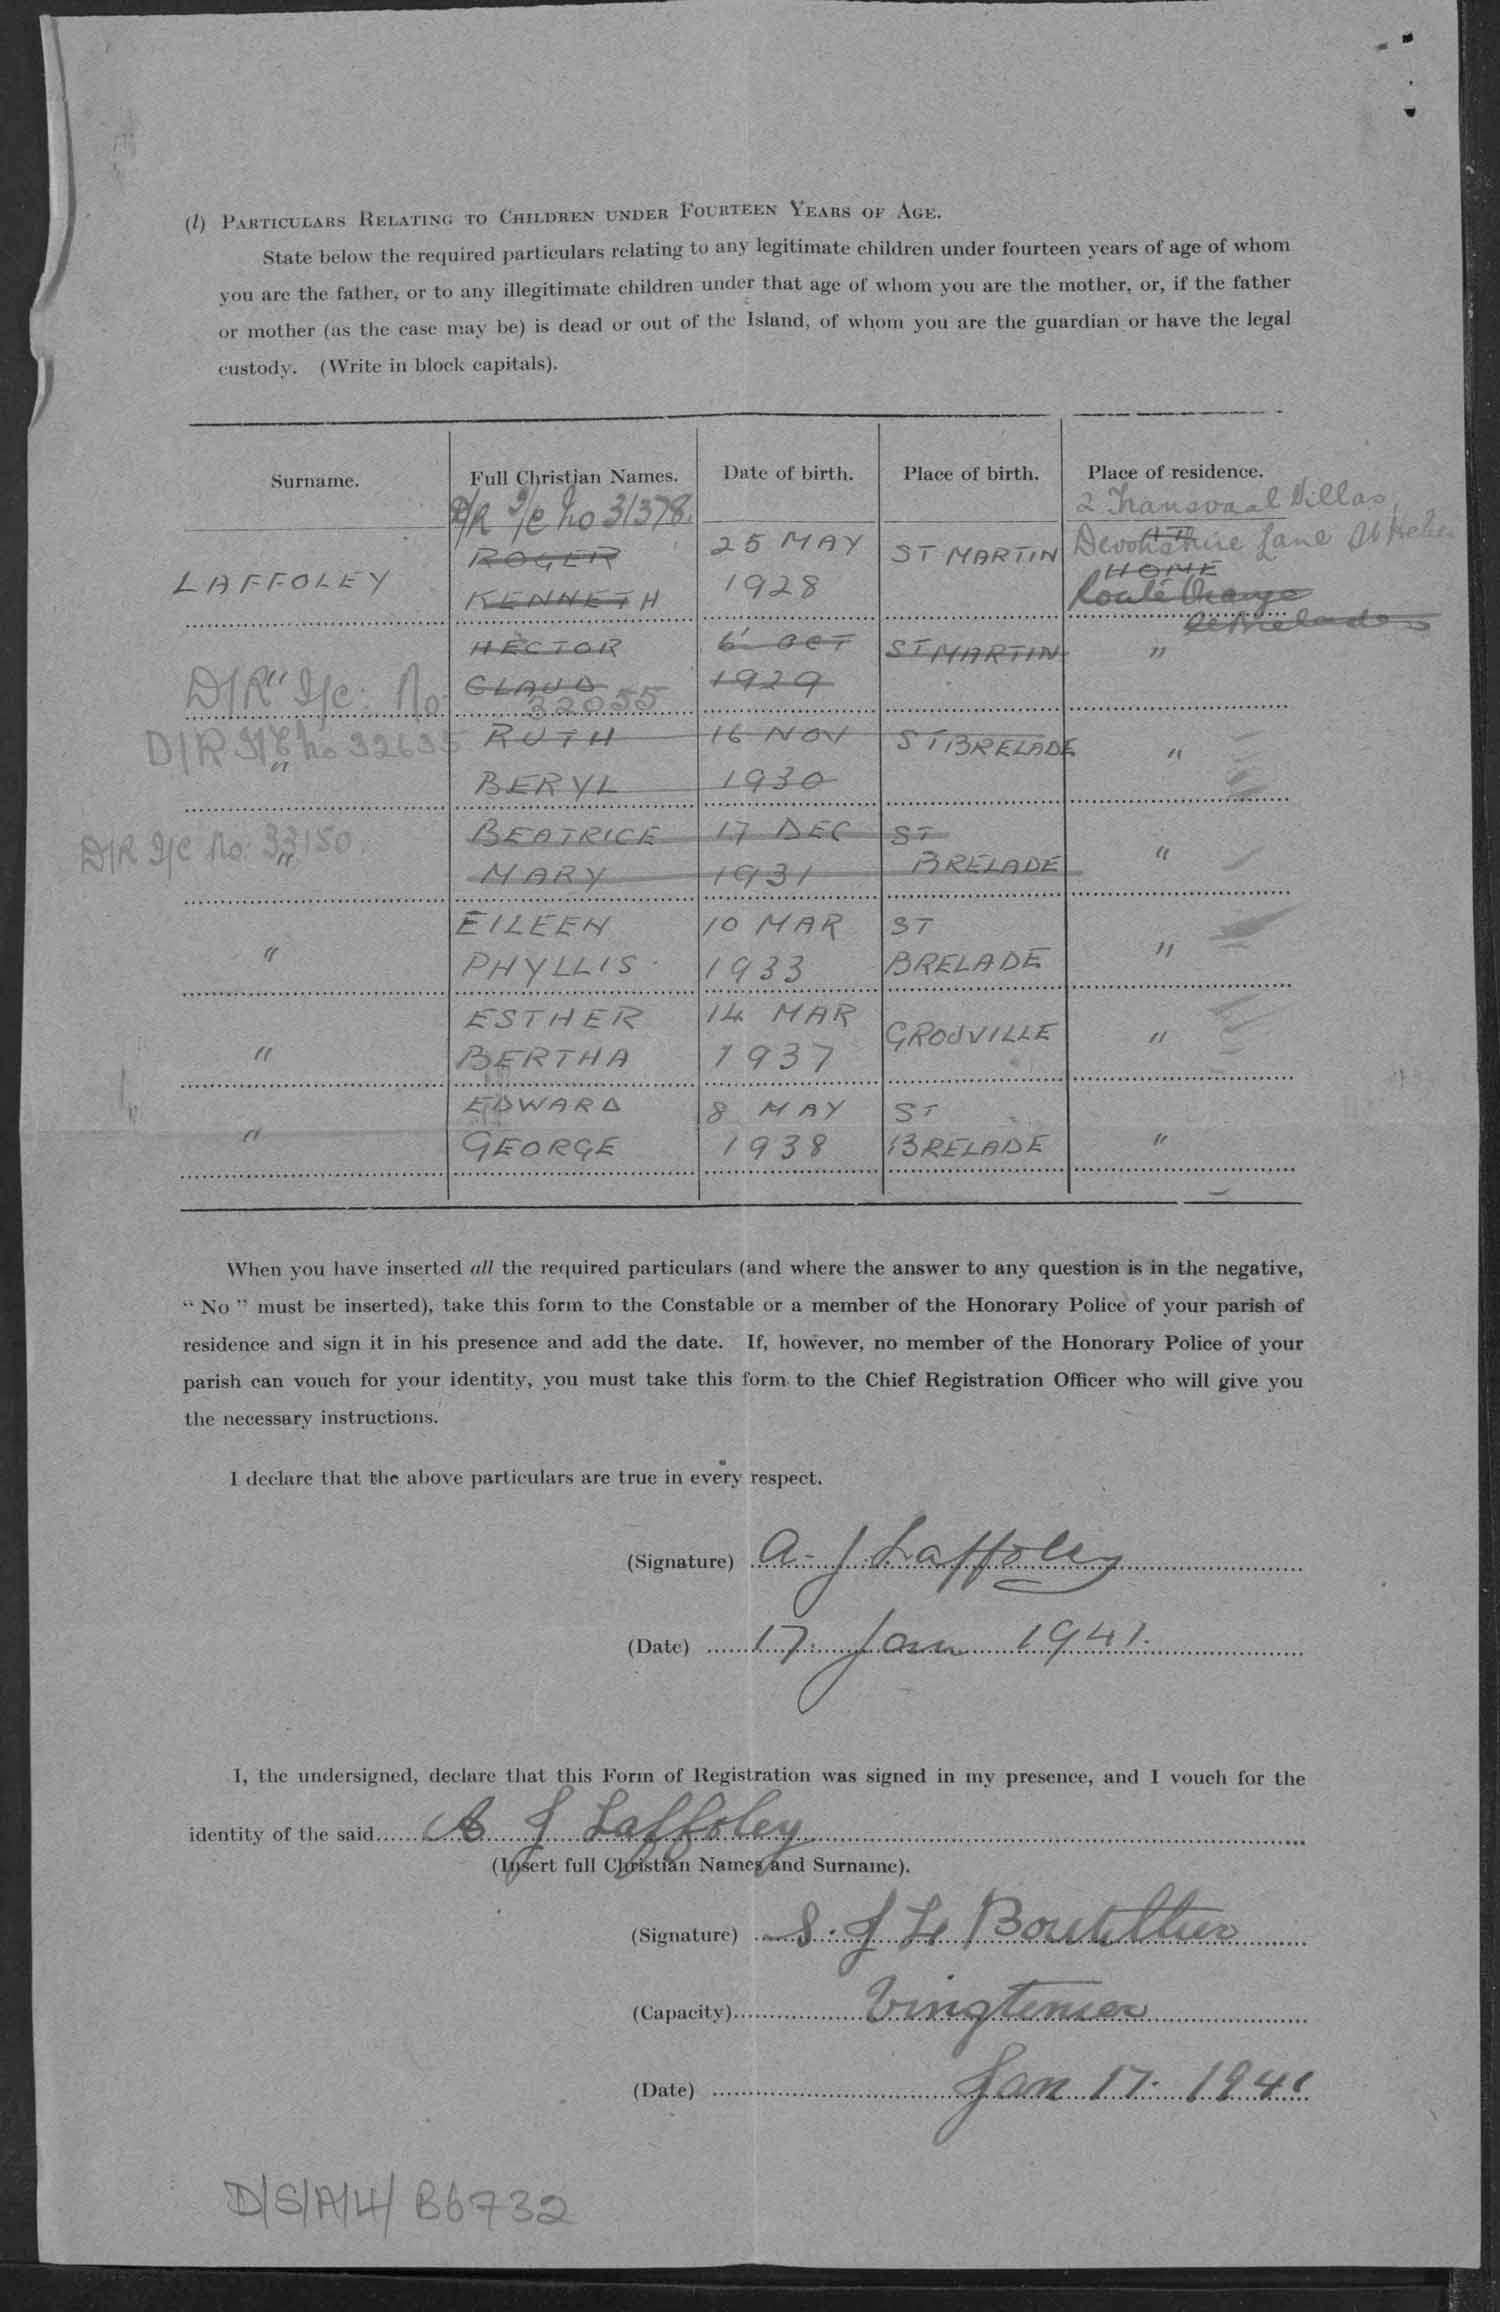 (l) PARTICULARS RELATING TO CHILDREN UNDER FOURTEEN YEARS OF AGE.
State below the required particulars relating to any legitimate children under fourteen years of age of whom
you are the father, or to any illegitimate children under that age of whom you are the mother, or, if the father
or mother (as the case may be) is dead or out of the Island, of whom you are the guardian or have the legal
custody. (Write in block capitals).
Surname. Full Christian Names. Date of birth. Place of birth. Place of residence.
D/R I/C No 31378. 2 Transvaal Villas
ROGER 25 MAY ST MARTIN Devonshire Lane St Helier
LAFFOLEY KENNETH 1928 HOME
Route Orange
St Brelades
HECTOR 6 OCT ST MARTIN "
" CLAUD 1929
D/R I/C: No: 32055
RUTH 16 NOV ST BRELADE "
D/R I/C No 32635
" BERYL 1930
BEATRICE 17 DEC ST
D/R I/C No: 33150 " MARY 1931 BRELADE "
EILEEN 10 MAR ST
" PHYLLIS 1933 BRELADE "
ESTHER 14 MAR GROUVILLE "
" BERTHA 1937
EDWARD 8 MAY ST
" GEORGE 1938 BRELADE "
When you have inserted all the required particulars (and where the answer to any question is in the negative,
" No " must be inserted), take this form to the Constable or a member of the Honorary Police of your parish of
residence and sign it in his presence and add the date. If, however, no member of the Honorary Police of your
parish can vouch for your identity, you must take this form to the Chief Registration Officer who will give you
the necessary instructions.
I declare that the above particulars are true in every respect.
(Signature) A. J. Laffoley
(Date) 17. Jan 1941.
I, the undersigned, declare that this Form of Registration was signed in my presence, and I vouch for the
identity of the said A J Laffoley
(Insert full Christian Names and Surname).
(Signature) S. J Le Boutillier
(Capacity) Vingtenier
(Date) Jan 17. 1941
D/S/A/4/B6732